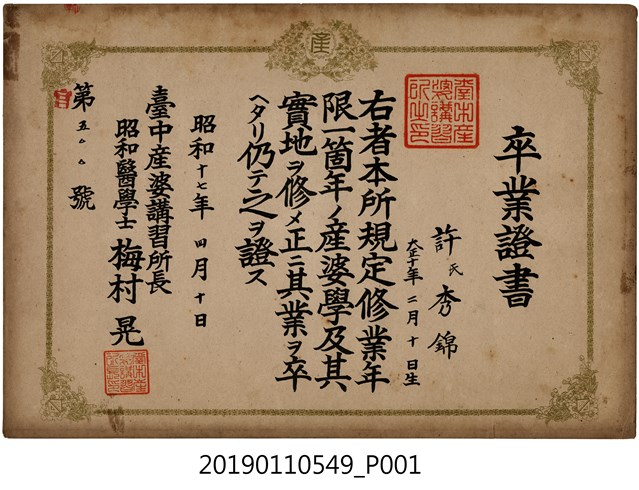 産
卒業證書
許氏秀錦
大正十年二月十日生
右者本所規定修業年
限一箇年ノ産婆學及其
實地ヲ修メ正ニ其業ヲ卒
ヘタリ仍テ之ヲ證ス
昭和十七年四月十日
臺中産婆講習所長
昭和醫學士 梅村晃
第五〇〇號
臺中産婆講習所之印
20190110549_P001